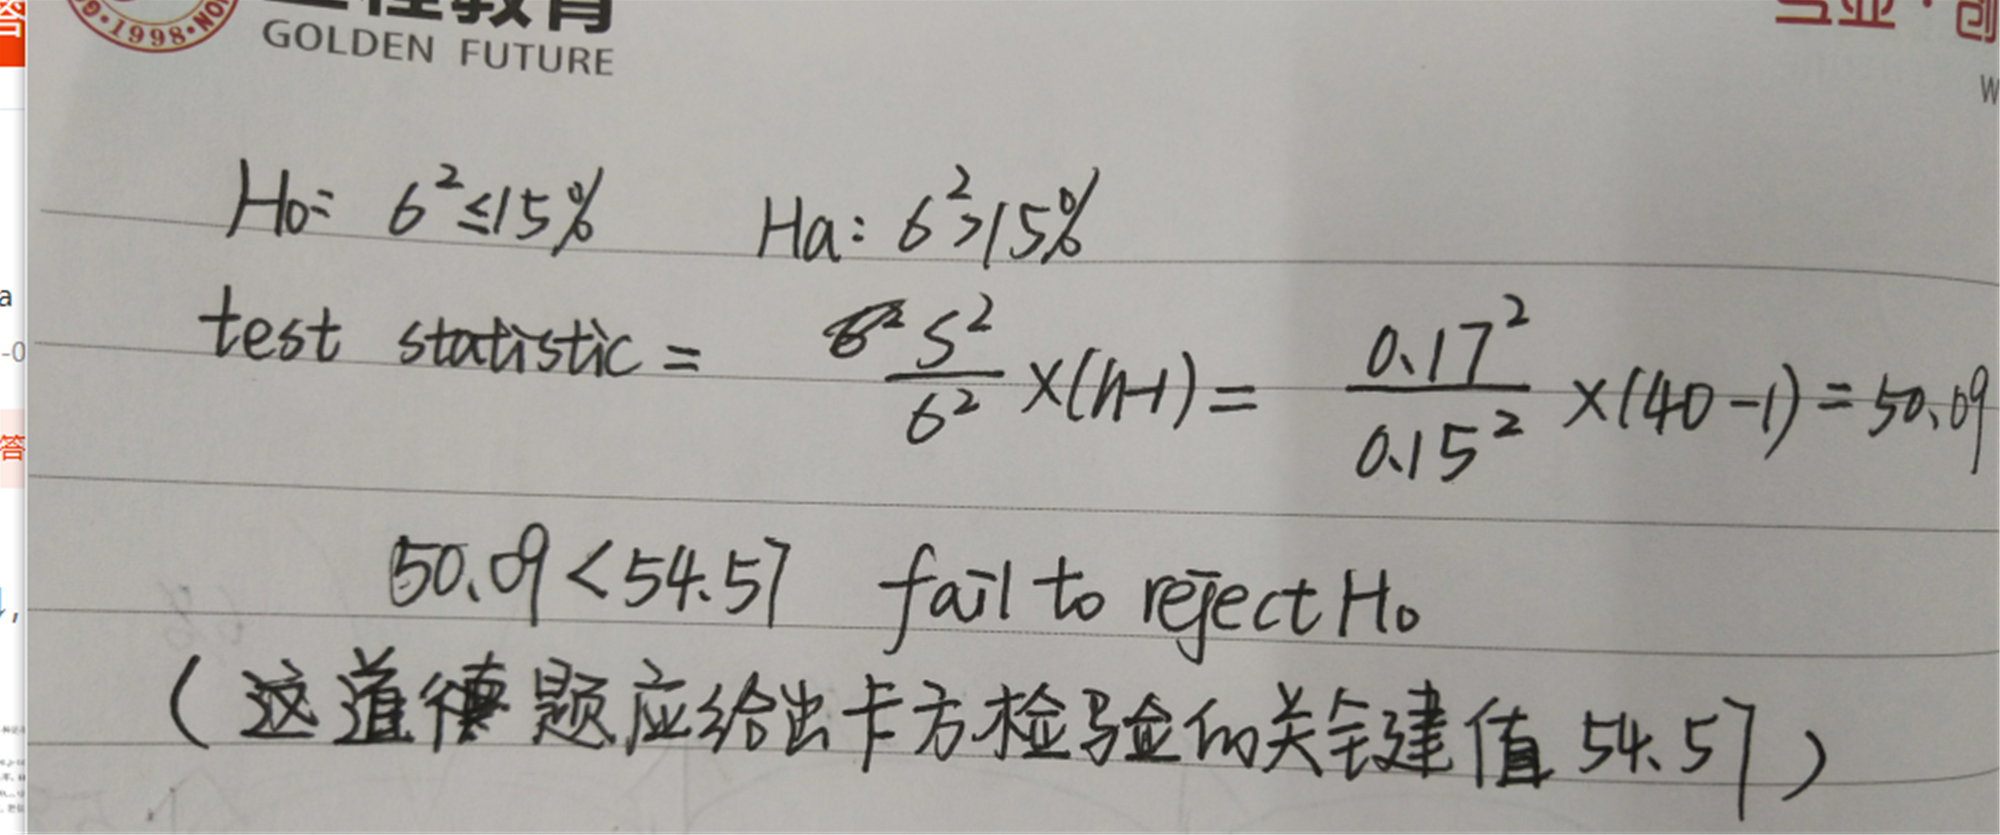 1998
GOLDEN FUTURE
H0: 6²≤15% Ha: 6²>15%
test statistic = S²/6² ×(n-1) = 0.17²/0.15² ×(40-1) = 50.09
50.09 < 54.57 fail to reject H0
(这道题应给出卡方检验的关键值 54.57)
a
-0
答